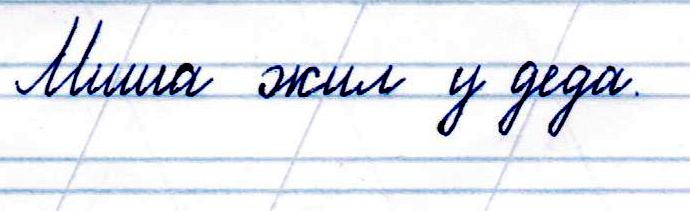 Миша жил у деда.